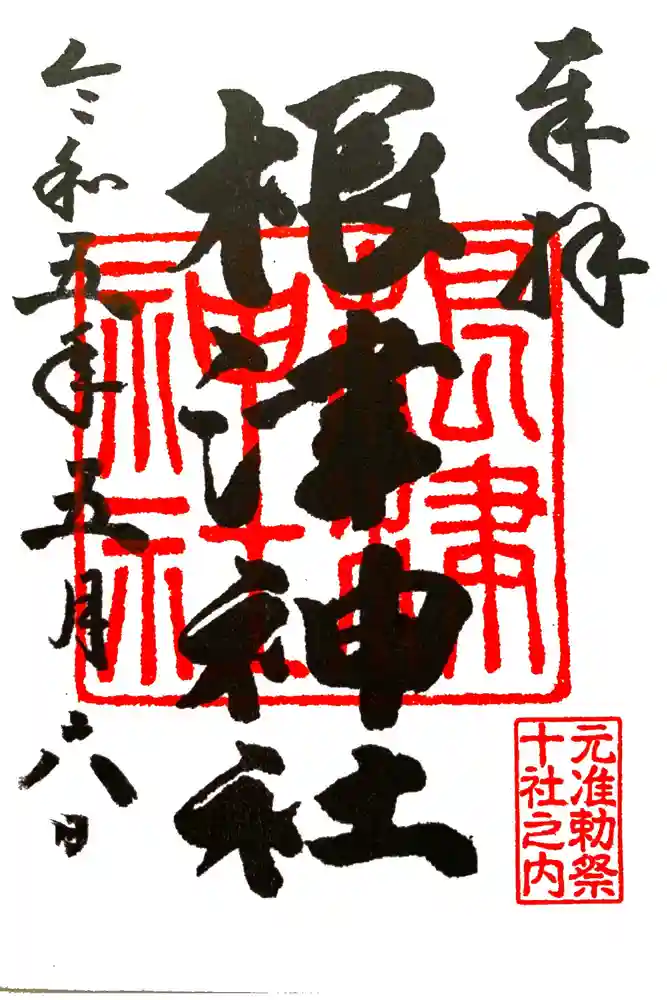 奉拝
根津神社
根津
神社
元准勅祭
十社之内
令和五年五月六日